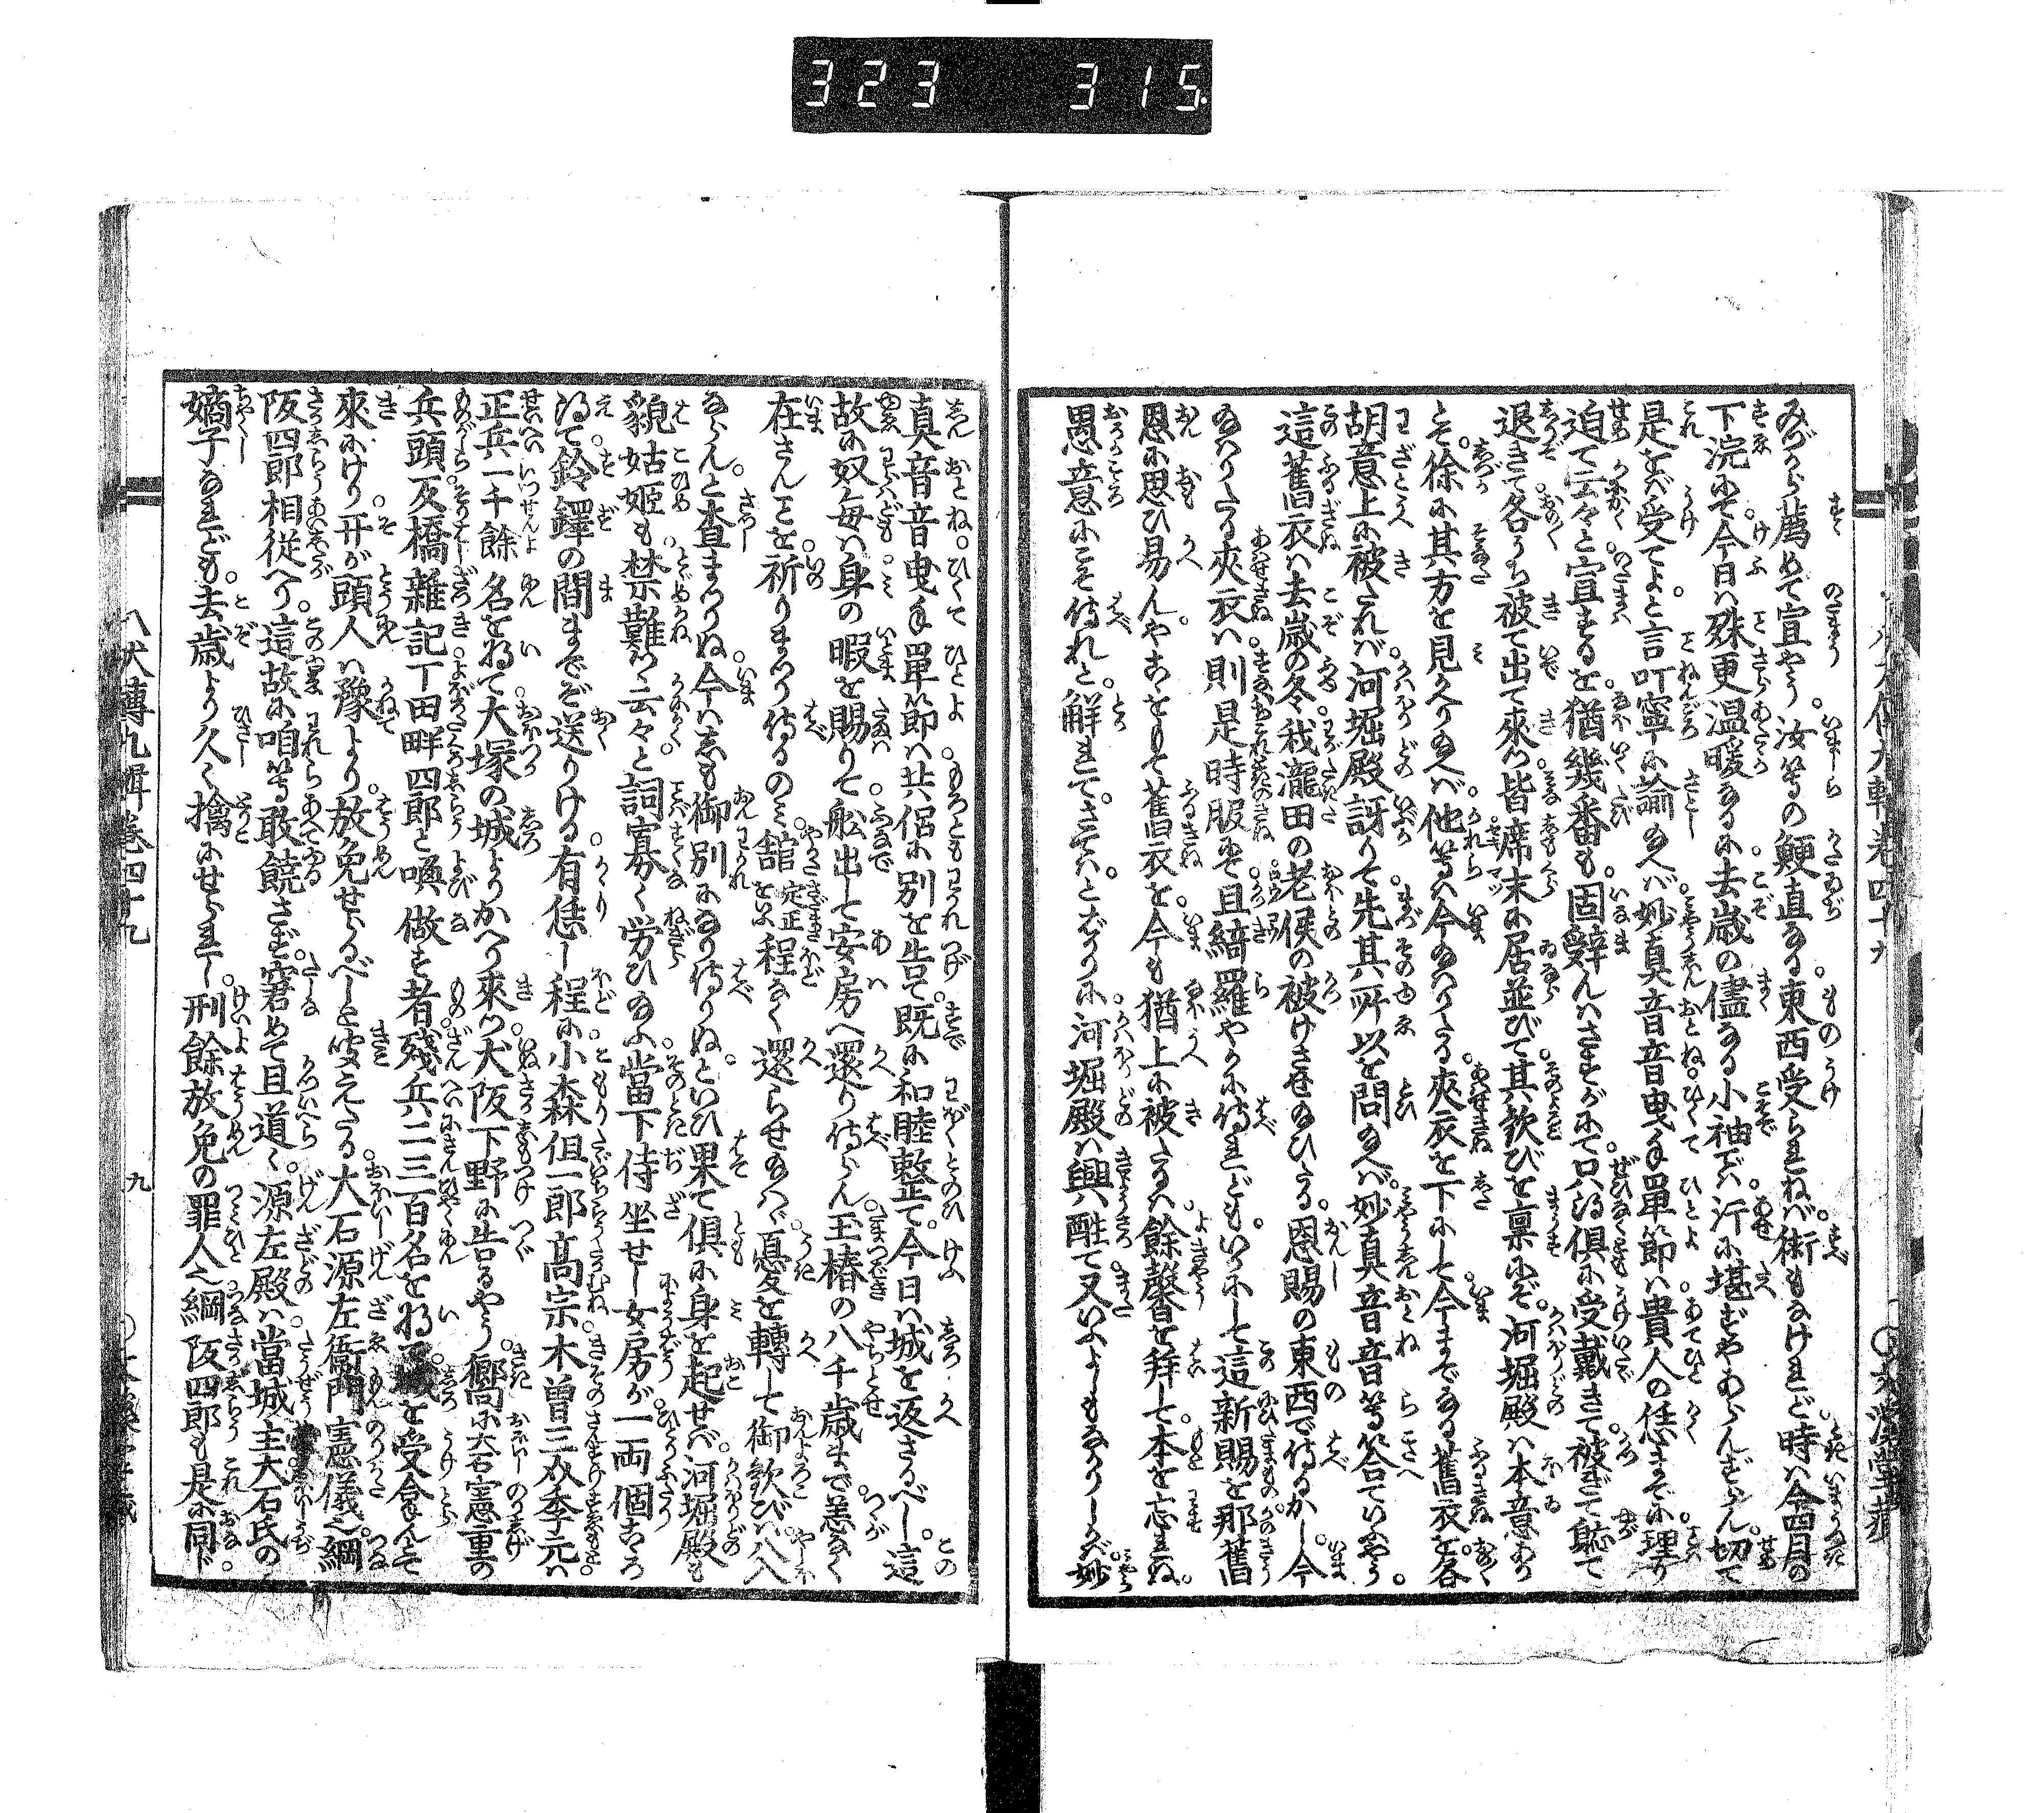 323 315
みづから薦めて宣やう汝等の鯁直なる東西受られねば術もなけれど時は今四月の
下浣にて今日は殊更温暖なるに去歳の儘なる小袖では汗に堪ずやあらんずらん切て
是をば受てよと言叮寧に諭給へば妙真音音曳手単節は貴人の恁まで理り
迫て云云と宣するを猶幾番も固辞んはさすがにて只得倶に受戴きて被ぎて恥て
退きて各うち被て出て来つ皆席末に居並びて其歓びを稟にぞ河堀殿は本意あり
とて徐に其方を見かへり給へば他等は今給はりたる夾衣を下にして今までなる旧衣を各
胡意上に被たれば河堀殿訝りて先其所以を問給へば妙真音音等答ていふやう
這旧衣は去歳の冬我瀧田の老侯の被けさせ給ひたる恩賜の東西で侍るかし今
給はりたる夾衣は則是時服にて且綺羅やかに侍れどもいかにして這新賜を那旧
恩に思ひ易んやこをもて旧衣を今も猶上に被たるは餘馨を拜して本を忘れぬ
愚意にこそ侍れと解れてさては とばかりに河堀殿は興醒て又いふよしもなかりしかば妙
真音音曳手単節は共侶に別を告て既に和睦整て今日は城を返さるべし這
故に奴毎は身の暇を賜りて舩出して安房へ還り侍らん玉椿の八千歳まで恙なく
在さんことを祈りまつり侍るのみ舘定正をいふ程なく還らせ給へば憂を轉して御歓びは八入
ならんと査まつりぬ今はしも御別になり侍りぬといひ果て倶に身を起せば河堀殿も
貌姑姫も禁難つ云云と詞寡く労ひ給ふ當下侍坐せし女房が一両個
得て鈴鐸の間までぞ送りける有恁し程に小森但一郎高宗木曽三介季元は
正兵一千餘名を將て大塚の城よりかへり來つ犬阪下野に告るやう嚮に大石憲重の
兵頭仮橋雜記丁田畔四郎と喚做す者殘兵二三百名を將て城を受合んとて
來にけり开が頭人は豫より放免せらるべしと聞えたる大石源左衛門憲儀之綱
阪四郎相従へり這故に咱等敢饒さず窘めて且道く源左殿は當城主大石氏の
嫡子なれども去歳より久く擒にせられし刑餘放免の罪人之綱阪四郎も是に同じ
八犬傳九輯卷四十九
九